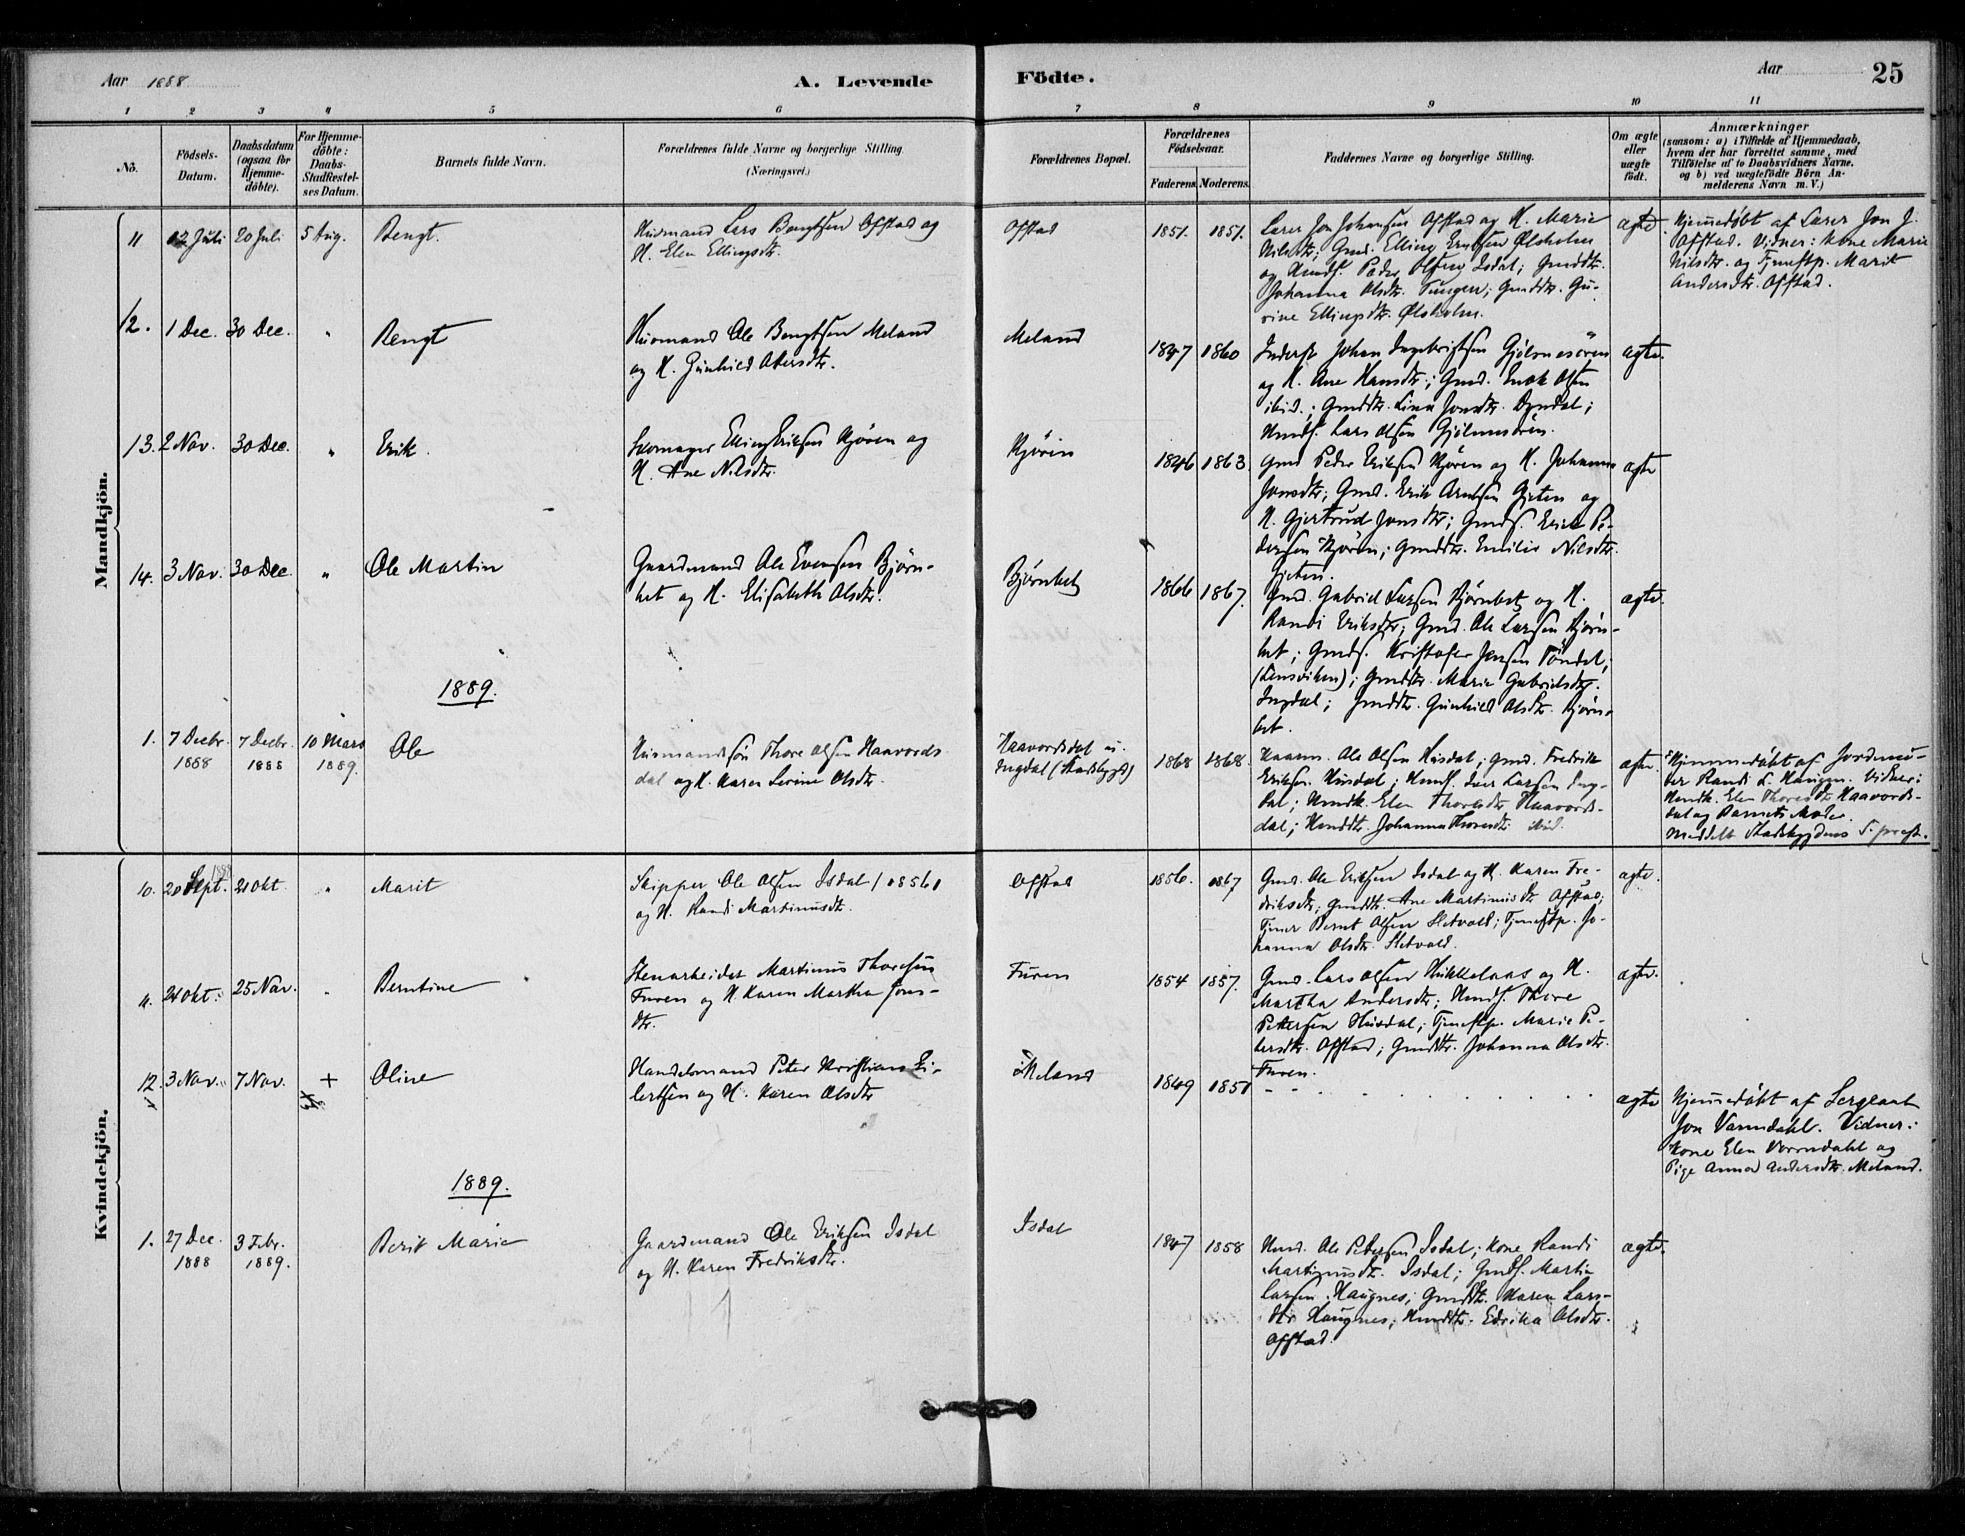 Aar 1888
A. Levende
Födte.
Aar
25
1 2 3 4 5 6 7 8 9 10 11
Nö.
Födsels-
Datum.
Daabsdatum
(ogsaa för
Hjemme-
döbte).
For Hjemme-
döbte:
Daabs-
Stadfæstel-
ses Datum.
Barnets fulde Navn.
Forældrenes fulde Navne og borgerlige Stilling
(Næringsvei.)
Forældrenes Bopæl.
Forældrenes
Födselsaar.
Faderens. Moderens.
Faddernes Navne og borgerlige Stilling.
Om ægte
eller
uægte
födt.
Anmærkninger
(saasom: a) i Tilfælde af Hjemmedaab,
hvem der har forrettet samme, med
Tilföielse af to Daabsvidners Navne,
og b) ved uægtefödte Börn An-
melderens Navn m. V.)
Mandkjön.
11 12 Juli 20 Juli 5 Aug. Bengt.
Husmand Lars Bengtsen Ofstad og
K. Elen Ellingsdtr.
Ofstad
1851. 1851.
Lærer Jon Johansen Ofstad og K. Marie
Nilsdtr; Gmd. Elling Erntsen Ølsholm
og Husmds. Peder Olsen Isdal; Gmddtr.
Johanna Olsdtr. ; Gmddtr. Gu-
rine Ellingsdtr. Ølsholm.
ægte
Hjemmedøbt af Lærer Jon J.
Ofstad. Vidner: Kone Marie
Nilsdtr. og Tjenestp. Marit
Andersdtr. Ofstad.
12. 1 Dec. 30 Dec. " Bengt
Husmand Ole Bengtsen Meland
og K. Gunhild Olersdtr.
Meland
1847 1860
Inderst Johan Ingebrigtsen Gjølmesøren
og K. Ane Hansdtr.; Gmd. Enok Olsen
ibid.; Gmddtr. Lina Jonsdtr. Dyndal;
Husmds. Lars Olsen Gjølmesøren.
ægte.
13. 2 Nov. 30 Dec. " Erik.
Skomager Elling Eriksen Kjøren og
K. Ane Nilsdtr.
Kjøren
1846 1863.
Gmd Peder Eriksen Kjøren og K. Johanna
Jonsdtr; Gmd. Erik Arntsen Gjeten og
K. Gjertrud Jonsdtr; Gmds. Erik Pe-
dersen Kjøren; Gmddtr. Emilie Nilsdtr.
Gjeten.
ægte
14. 3 Nov. 30 Dec. " Ole Martin
Gaardmand Ole Evensen Bjørn-
bet og K. Elisabeth Olsdtr.
Bjørnbet
1866 1867.
Gmd. Gabriel Larsen Bjørnbet og K.
Randi Eriksdtr; Gmd. Ole Larsen Bjørn-
bet; Gmds. Kristofer Jensen Tøndel;
(Lensviken); Gmddtr. Marie Gabrielsdtr.
Ingdal; Gmddtr. Gunhild Olsdtr. Bjørn-
bet.
ægte.
1889.
1. 7 Decbr. 1888 7 Decbr. 1888 10 Mars 1889. Ole
Husmandssøn Thore Olsen Haavords
dal og K. Karen Serine Olsdtr.
Haavordsdal u.
Ingdal (Stadsbygd)
1868 1868.
Kaarm. Ole Olsen Husdal; Gmd. Fredrik
Eriksen Husdal; Husmds. Iver Larsen Ing-
dal; Hmdk. Elen Thoresdtr Haavords-
dal; Hmddtr. Johanna Thoresdtr ibid.
ægte.
Hjemmedøbt af Jordmo-
der Randi L. Haugen. Vidner:
Hmdk. Elen Thoresdtr Haavords-
dal og Barnets Moder.
Meddelt Stadsbygdens S.prest.
Kvindekjön.
10. 20 Sept. 1888 21 Okt. " Marit
Skipper Ole Olsen Isdal (1856)
og K. Randi Martinusdtr.
Ofstad
1856. 1867
Gmd. Ole Eriksen Isdal og K. Karen Fre-
driksdtr; Gmddtr. Ane Martinusdtr Ofstad;
Tjener Bernt Olsen Sletvold; Tjenestp. Jo-
hanna Olsdtr. Sletvold.
ægte.
11. 24 Okt. 25 Nov. Berntine
Stenarbeider Martinus Thoresen
Furen og K. Karen Martha Jons-
dtr.
Furen
1854 1857.
Gmd. Lars Olsen Hukkelaas og K.
Martha Andersdtr; Husmds. Thore
Petersen Husdal; Tjenestp. Marie Pe-
tersdtr. Ofstad; Gmddtr. Johanna Olsdtr.
Furen.
ægte.
12. 3 Nov. 7 Nov. + Oline
Handelsmand Peter Kristian Ei-
lertsen og K. Karen Olsdtr
Meland
1849 1851
ægte
Hjemmedøbt af Sergeant
Jon Varmdahl. Vidner:
Kone Elen Varmdahl og
Pige Anna Andersdtr. Meland.
1889.
1. 27 Dec. 1888 3 Febr. 1889. Berit Marie
Gaardmand Ole Eriksen Isdal
og K. Karen Fredriksdtr.
Isdal
1847 1858
Hmd. Ole Petersen Isdal; Kone Randi
Martinusdtr. Isdal; Gmds. Martin
Larsen Haugnes; Gmddtr. Karen Lars-
dtr Haugnes; Hmddtr. Edrika Olsdtr.
Ofstad.
ægte.